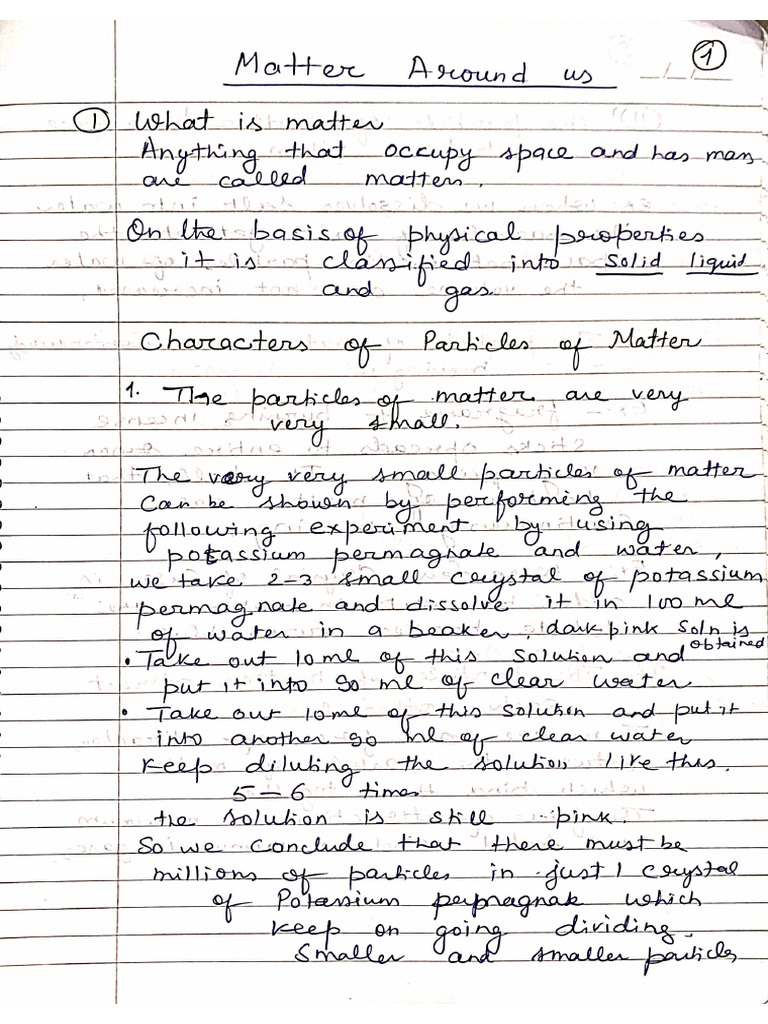 Matter Around us
1
1 What is matter
Anything that occupy space and has mass
are called matters.
On the basis of physical properties
it is classified into solid liquid
and gas
Characters of Particles of Matter
1. The particles of matter are very
very small.
The very very small particles of matter
Can be shown by performing the
following experiment by using
potassium permagnate and water,
we take 2-3 small crystal of potassium
permagnate and dissolve it in 100 ml
of water in a beaker, dark pink soln is
obtained
• Take out 10 ml of this solution and
put it into 90 ml of clear water
• Take out 10 ml of this solution and put it
into another 90 ml of clear water
keep diluting the solution like this.
5-6 times
the solution is still pink.
So we conclude that there must be
millions of particles in just 1 crystal
of Potassium which
keep on going dividing.
Smaller and smaller particles